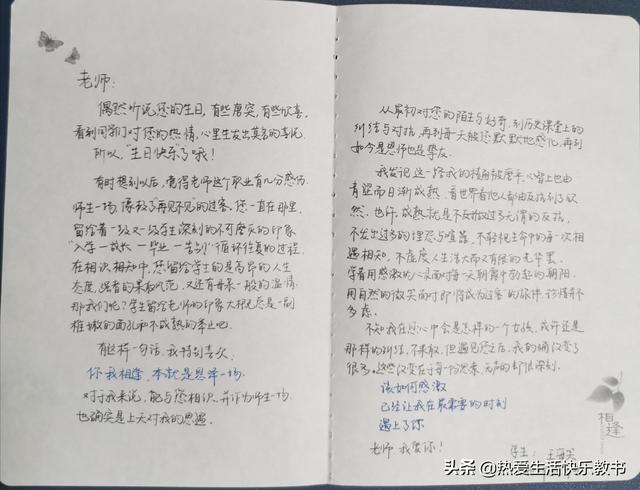 老师：
偶然听说您的生日，有些唐突，有些欣喜。
看到同学们对您的热情，心里生发出莫名的喜悦。
所以，“生日快乐”哦！
有时想到以后，觉得老师这个职业有几分感伤。
师生一场，像极了“再见不见”的过客。您一直在那里，
留给着一级又一级学生深刻的不可磨灭的印象
“入学一成长一毕业一告别”循环往复的过程。
在相识相知中，您留给学生的是高昂的人生
态度，强者的果和风范，又还有母亲一般的温情。
那我们呢？学生留给老师的印象大概总是一副
稚嫩的面孔和不成熟的举止吧。
有这样一句话，我特别喜欢，
你我相逢，本就是恩泽一场。
对于我来说，能与您相识，并作为师生一场，
也确实是上天对我的恩遇。
从最初对您的陌生与好奇，到历史课堂上的
纠结与对抗，再到每一天被您默默地感化，再到
如今是恩师也是挚友。
我发觉这一路我的棱角被磨平，心智上也由
青涩而日渐成熟，看世界看他人都由反抗到了欣
然。也许，成熟就是不去做过多无谓的反抗，
不发出过多的埋怨与喧嚣，不轻视生命中的每一次相
遇相知，不虚度人生浩大而又有限的光华里。
学着用感激的心灵面对每一天朝霞中勃起的朝阳，
用自然的微笑面对即将成为过客的旅伴，该惜并不
多虑。
不知我在您心中会是怎样的一个女孩，或许还是
那样的纠结，不果敢，但遇见您之后，我的确改变了
很多。这些改变在于每个分秒，无声的却很深刻。
该如何感激
已经让我在最需要的时刻
遇上了你
老师 我爱你！
学生：王
相逢
头条 @热爱生活快乐教书